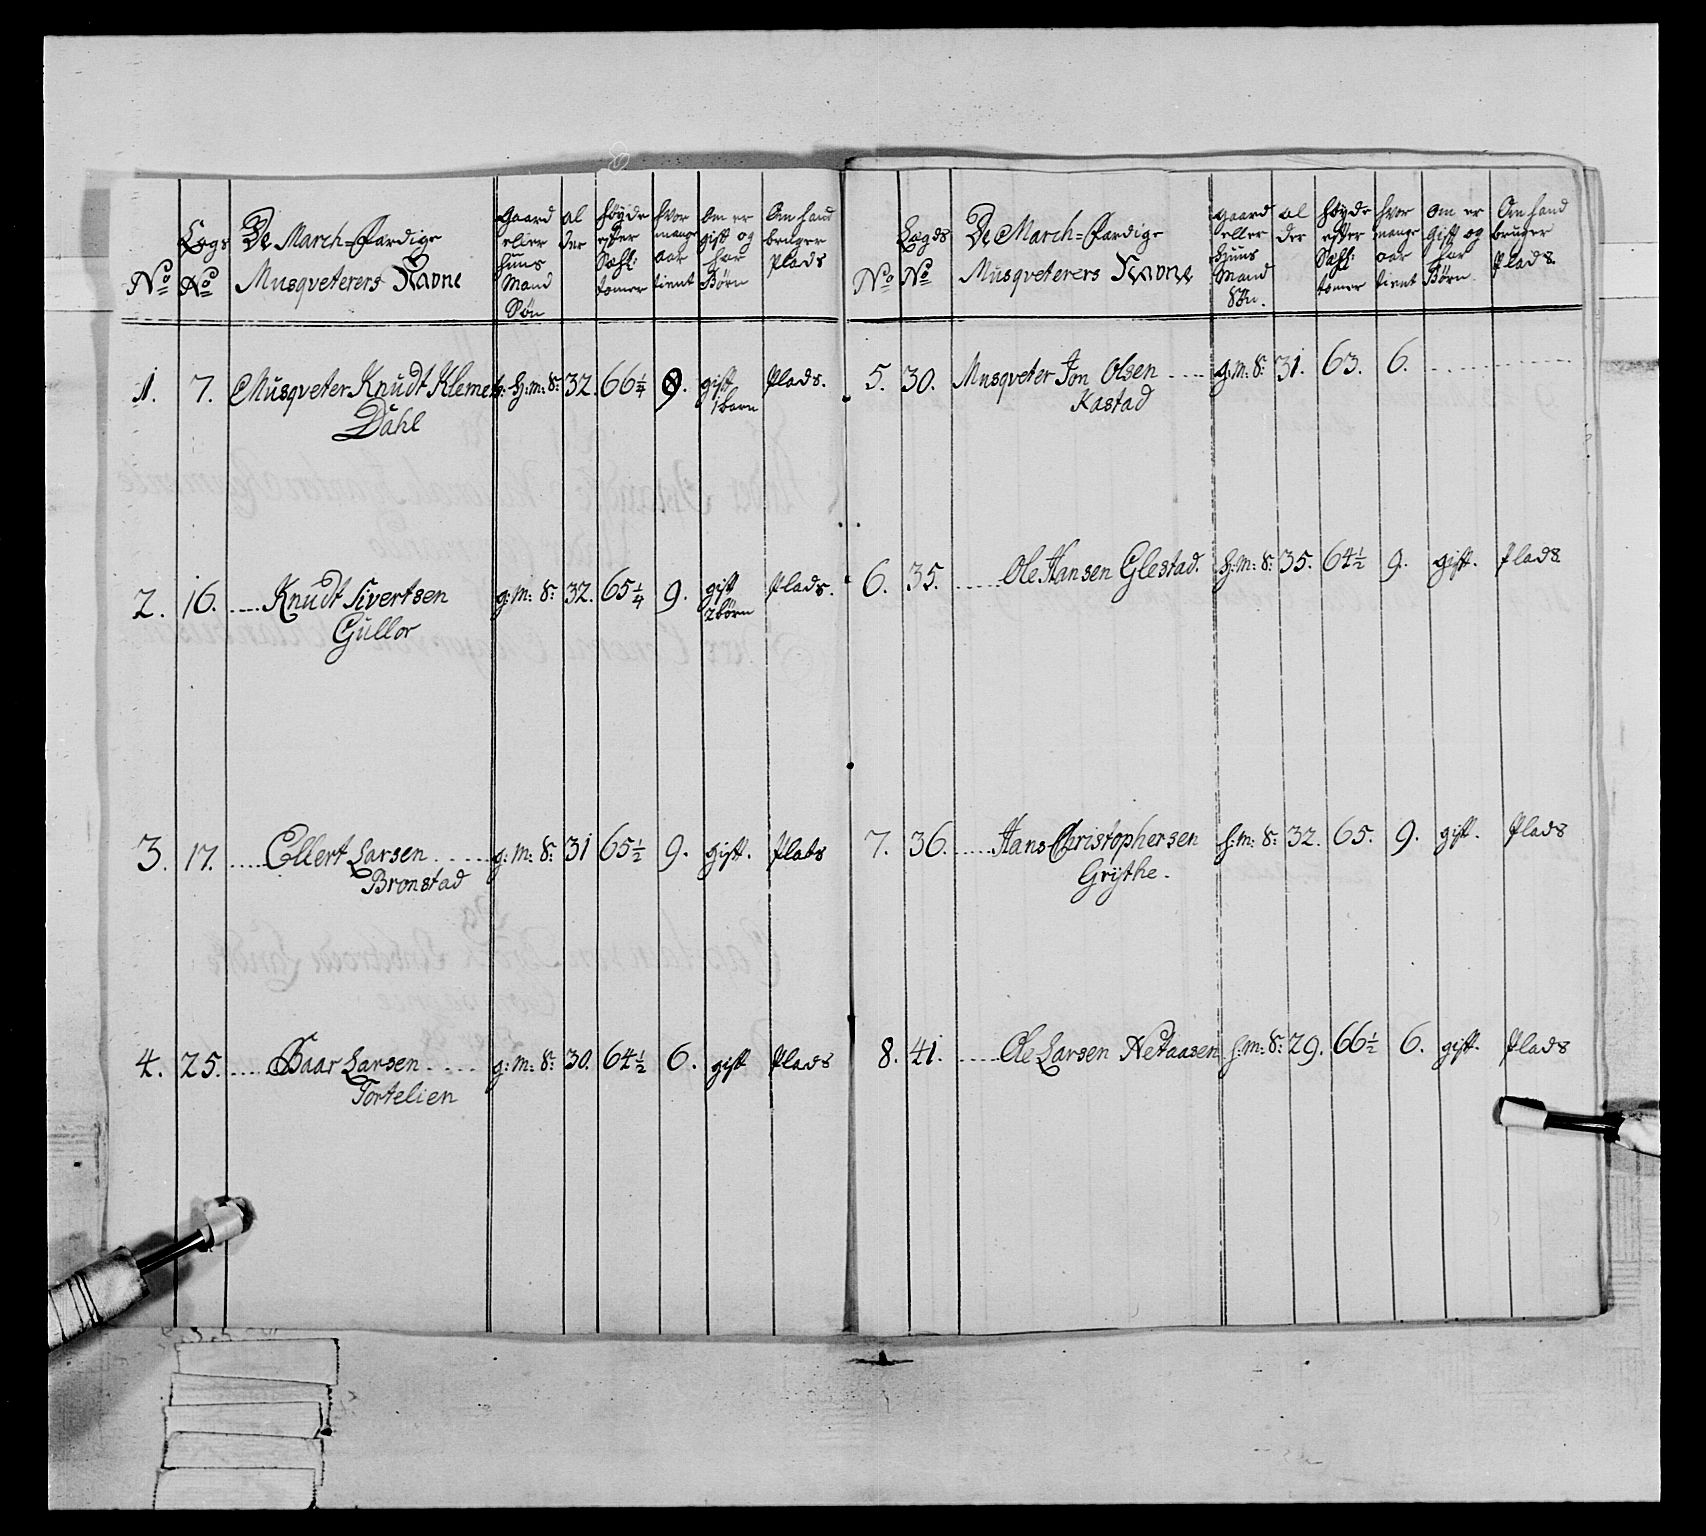 No
Legs No
De March=Færdige
Musqveterers Navne
Gaard
eller
Huus
Mand
Søn
al
der
Høyde
efter
Sæhl:
tomer
hvor
mange
aar
tient
om er
gift og
har
Børn
Om hand
bruger
Plads
1. 7. Musqveter Knudt Klemets: H:m:S: 32. 66 1/4 9. gift Plads.
Dahl
1 barn
2. 16. Knudt Sivertsen g:m:S: 32. 65 1/4 9. gift Plads.
Gullor
2 børn
3. 17. Ellert Larsen g:m:S: 31 65 1/2 9. gift. Plads
Bronstad
4. 25. Baar Larsen g:m:S: 30. 64 1/2 6. gift Plads
Tortelien
No
Lægds No
De March=Færdige
Musqveterers Navne
gaard
eller
Huus
Mand
Søn.
al
der
Høyde
efter
Sæhl:
tomer
hvor
mange
aar
tient
om er
Gift og
har
Børn
Om hand
bruger
Plads
5. 30. Musqveter Jon Olsen g:m:S: 31. 63. 6.
Kastad
6. 35. Ole Hansen Glestad. H:m:S: 35. 64 1/2 9. gift. Plads
7. 36. Hans Christophersen H:m:S: 32. 65. 9. gift. Plads
Grythe.
8. 41. Ole Larsen Nettaasen H:m:S: 29. 66 1/2 6. gift. Plads